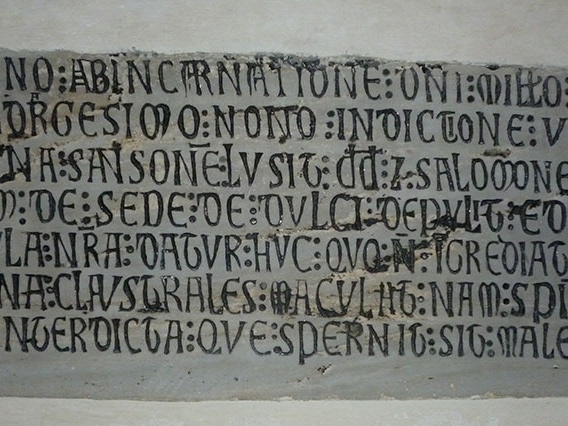 NO : AB INCARNATIONE : DNI : MILLO :
DRGESIMO : NONO : INDICTIONE : V
NA : SANSONĒ : LVSIT : DD : Z : SALOMONE
M : DE : SEDE : DE : DVLCI : DEPVLT : E D
LA : NRA : DATVR : HVC : QVO : N : IGREDIAT
NA : CLAVSTRALES : MACVLAT : NAM : SPI
INTERDICTA : QVE : SPERNIT : SIT : MALE